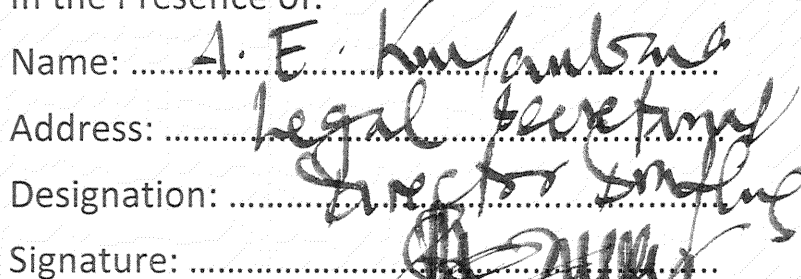 In the Presence of:
Name: ........ A. E.
Address: ........ Legal Secretariat
Designation: ........ Director Drafting
Signature: ........